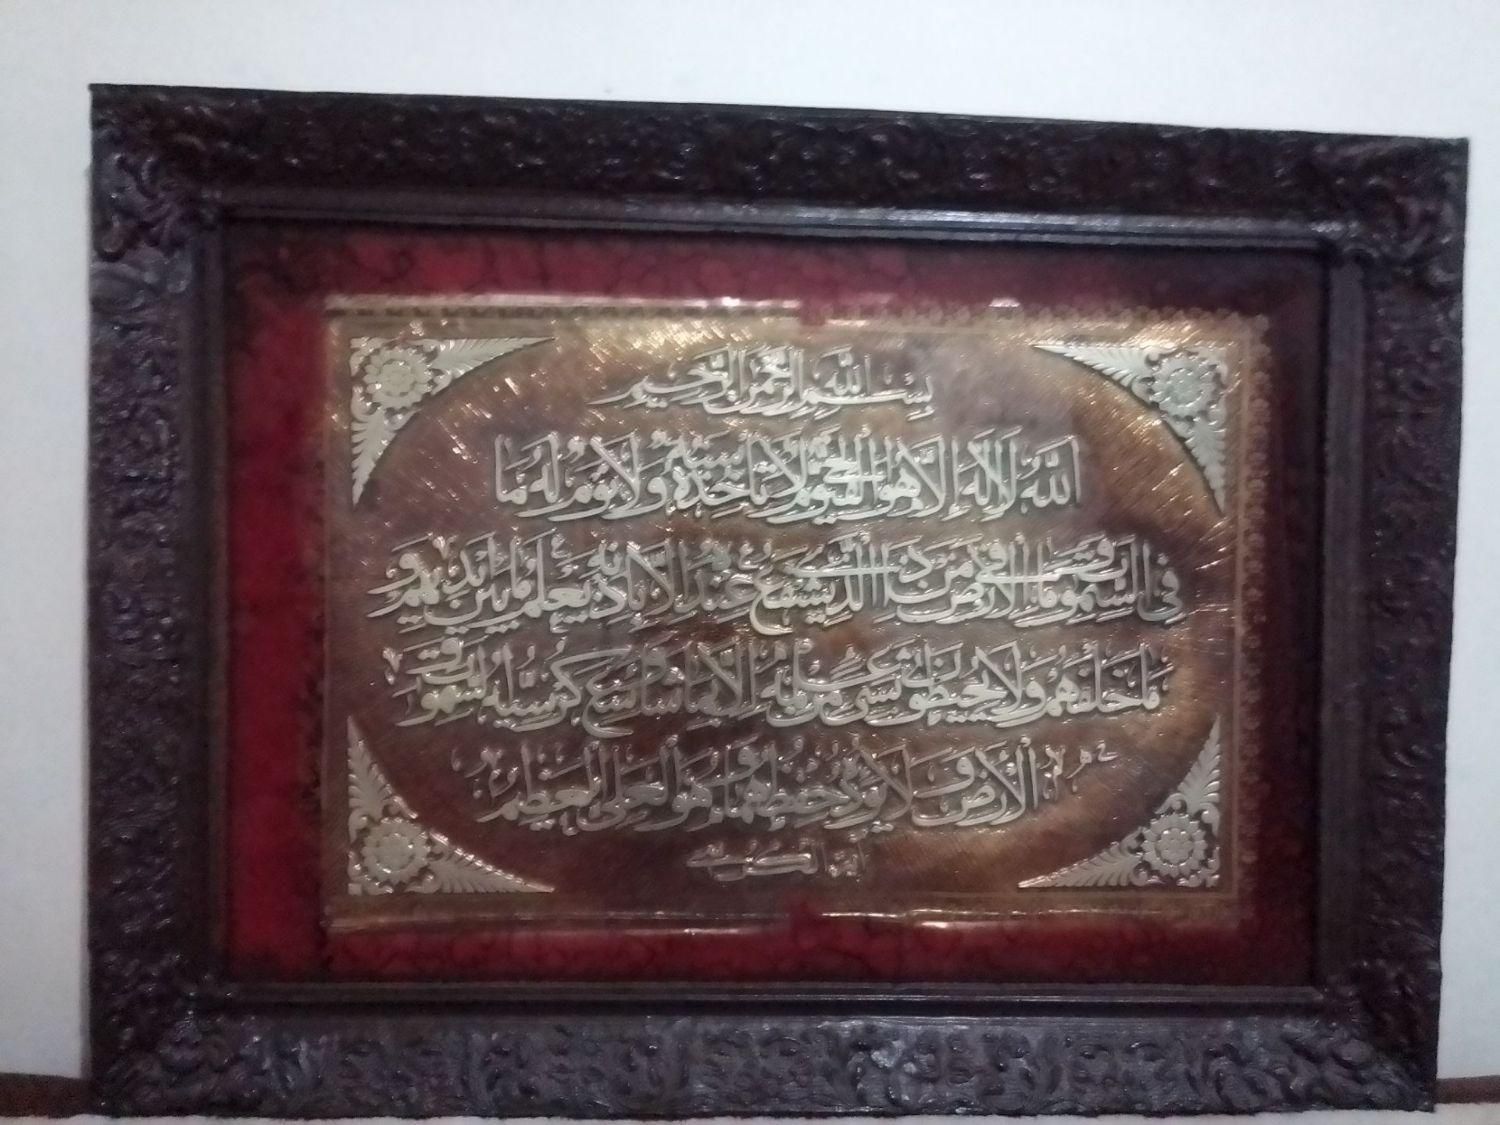 بِسْمِ اللَّهِ الرَّحْمَنِ الرَّحِيمِ
اللَّهُ لَا إِلَهَ إِلَّا هُوَ الْحَيُّ الْقَيُّومُ لَا تَأْخُذُهُ سِنَةٌ وَلَا نَوْمٌ لَهُ مَا
فِي السَّمَوَاتِ وَمَا فِي الْأَرْضِ مَنْ ذَا الَّذِي يَشْفَعُ عِنْدَهُ إِلَّا بِإِذْنِهِ يَعْلَمُ مَا بَيْنَ أَيْدِيهِمْ وَ
مَا خَلْفَهُمْ وَلَا يُحِيطُونَ بِشَيْءٍ مِنْ عِلْمِهِ إِلَّا بِمَا شَاءَ وَسِعَ كُرْسِيُّهُ السَّمَوَاتِ
وَالْأَرْضَ وَلَا يَئُودُهُ حِفْظُهُمَا وَهُوَ الْعَلِيُّ الْعَظِيمُ
آية الكرسي